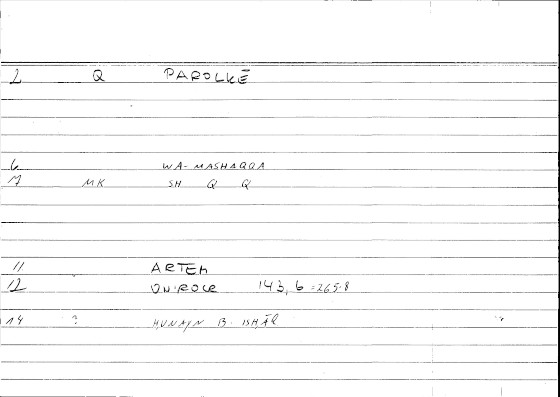 2 Q PAROLKĒ
6 WA-MASHAQQA
7 MK SH Q Q
11 ARTEM
12 143, 6 =265.8
14 ? HUNAYN B. ISHĀQ